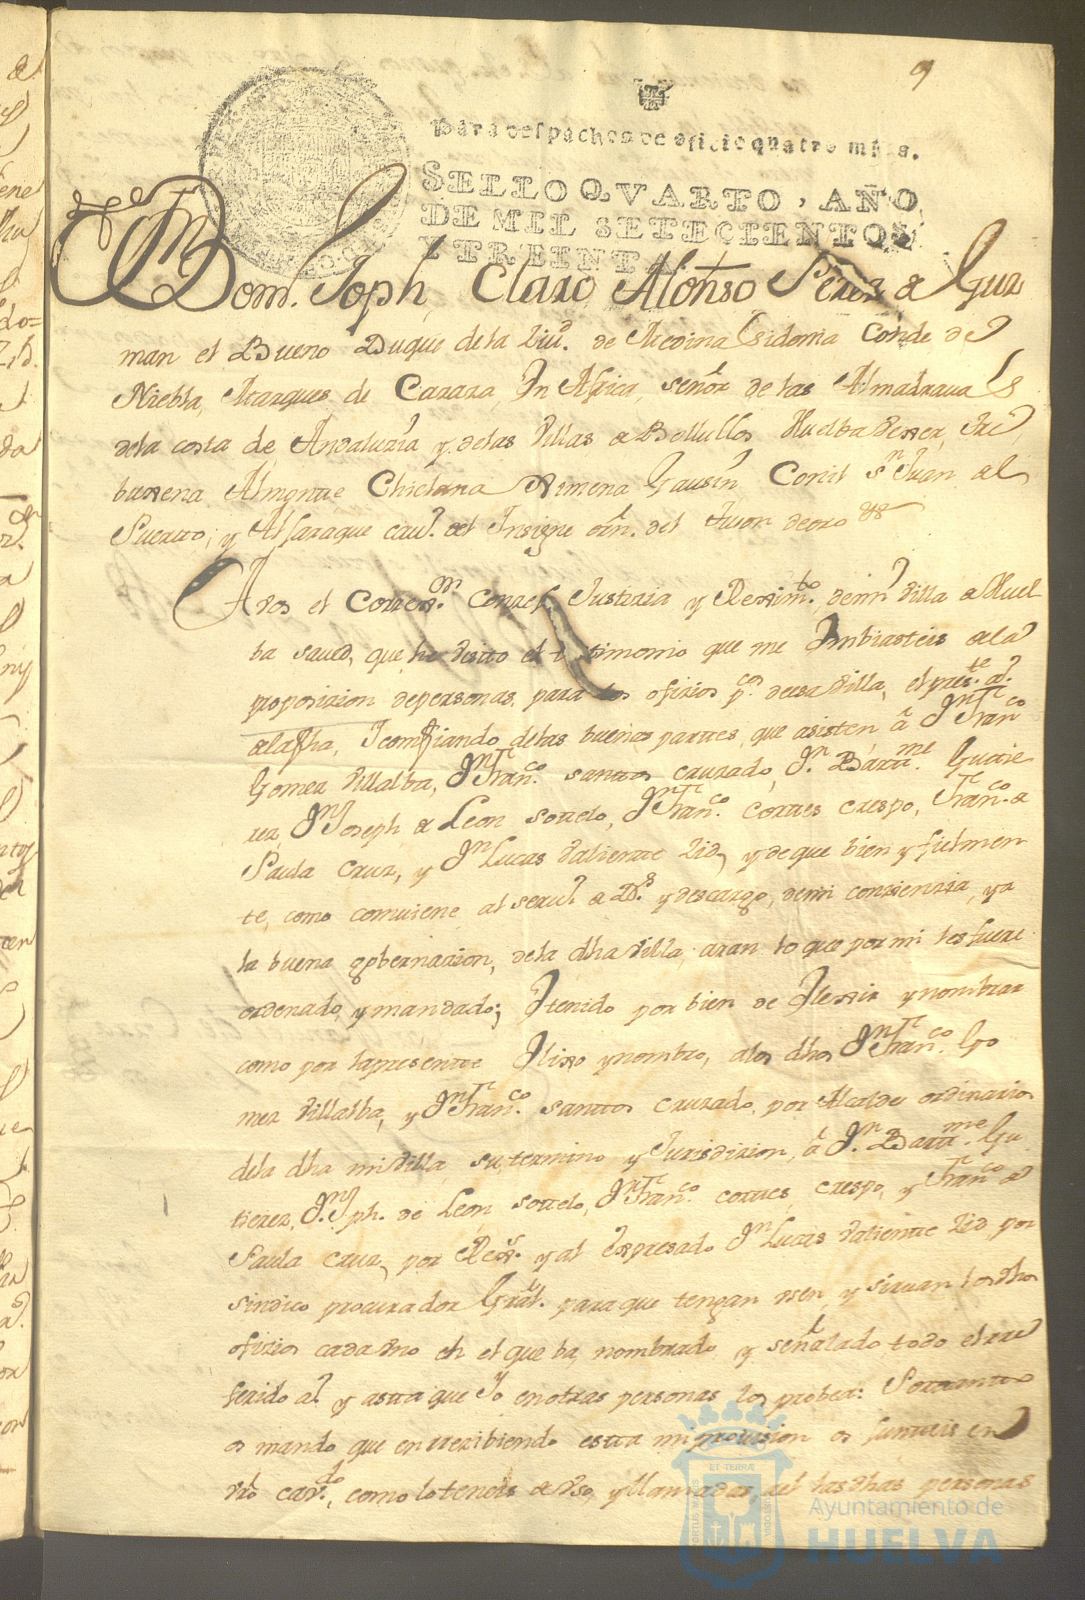 9
Para despachos de oficio quatro mrs.
SELLO QVARTO, AÑO
DE MIL SETECIENTOS
Y TREINT
Dom. Joph, Claro Alonso Perez de Guz
man el Bueno Duque de la Ziud. de Medina Sidonia Conde de
Niebla, Marques de Cazaza, In Africa, señor de las Almadravas
de la costa de Andaluzia y de las Villas de Bollullos Huelba
buxena Almonte Chiclana Ximena Gausin Conil Sn. Juan del
Puerto, y Alfaraque cavo. del Insigne orn. del Tuson de oro &&
A vos el Correxor. Conzejo, Justizia y Reximto. de mi Villa de Huel
ba saved, que he visto el testimonio que me Imbiasteis de la
proposizion de personas, para los ofizios pcos. de esa Villa, el preste. a.
de la fha, I confiando de las buenas partes que asisten, a Dn Franco
Gomez Villalba, Dn Franco. santtos cruzado, Dn. Barttme. Gutie
rez, Dn Joseph de Leon sottelo, Dn Franco. corttes crespo, Franco. de
Paula Cruz, y Dn Lucas Valiente Lid, y de que bien y fielmen
te, como comviene al servo. de Ds. y descargo, de mi conzienzia, y a
la buena gobernazion, de la dha Villa, aran lo que por mi les fuere
ordenado, y mandado; I tenido por bien de Elexir y nombrar
como por la presente Elixo y nombro, a los dhos Dn Franco. Go
mez Villalba, y Dn Franco. santtos cruzado, por Alcaldes ordinarios
de la dha mi Villa, su termino y Jurisdizion, a Dn. Barttme. Gu
tierez, Dn. Jph. de Leon sottelo, Dn Franco. corttes, crespo, y Franco de
Paula cruz, por Rexs. y al expresado Dn Lucas Valiente Lid, por
sindico procurador Gral. para que tengan usen, y sirvan los dhos
ofizios cada Uno en el que ba nombrado y señalado todo el rre
ferido a. y astta que Yo en otras personas los probea: Porttantto
os mando que en rrezibiendo estta mi provision os junteis en
vro cavdo., como lo teneis de Uso, y llamadas a el las dhas personas
Ayuntamiento de
HUELVA